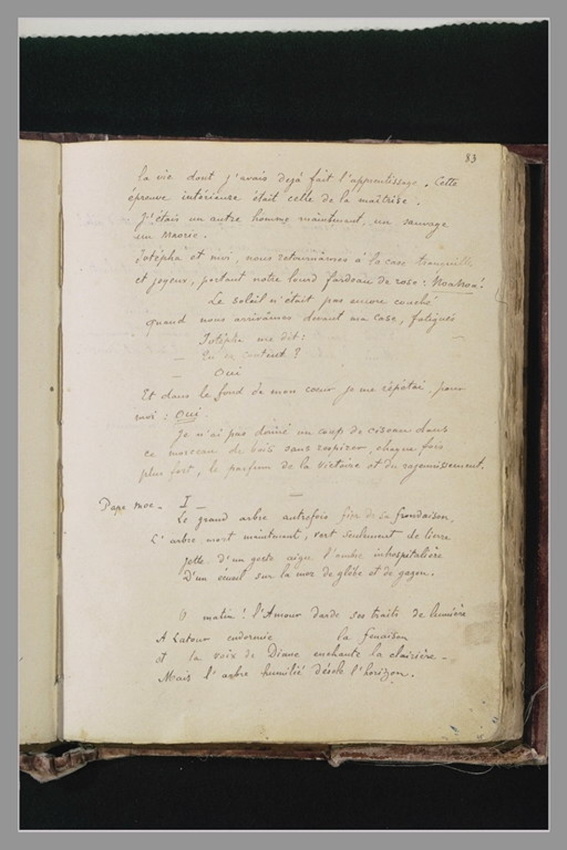 83
la vie dont j'avais dejà fait l'apprentissage. Cette
épreuve intérieure était celle de la maîtrise.
J'étais un autre homme maintenant, un sauvage
un Maorie.
Totépha et moi, nous retournâmes à la case tranquille
et joyeux, portant notre lourd fardeau de rose : NoaNoa!
Le soleil n'était pas encore couché
quand nous arrivâmes devant ma case, fatigués
Totépha me dit :
— Tu es content ?
— Oui
Et dans le fond de mon coeur je me répétai pour
moi : Oui.
Je n'ai pas donné un coup de ciseau dans
ce morceau de bois sans respirer, chaque fois
plus fort, le parfum de la victoire et du rajeunissement.
—
Pape moe - I —
Le grand arbre autrefois fier de sa frondaison,
L'arbre mort maintenant, vert seulement de lierre
jette d'un geste aigu l'ombre inhospitalière
D'un sur la mer de glèbe et de gazon.
O matin ! l'Amour darde ses traits de lumière
A Latour endormie la fenaison
et la voix de Diane enchante la clairière -
Mais l'arbre humilié désole l'horizon.